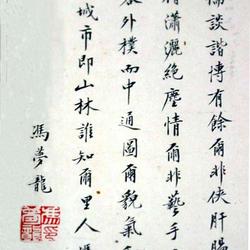 儒談諧博有餘爾非俠肝腸
相瀟灑絕塵情爾非藝手
外樸而中通圖爾貌氣
城市即山林誰知爾里人馮
馮夢龍